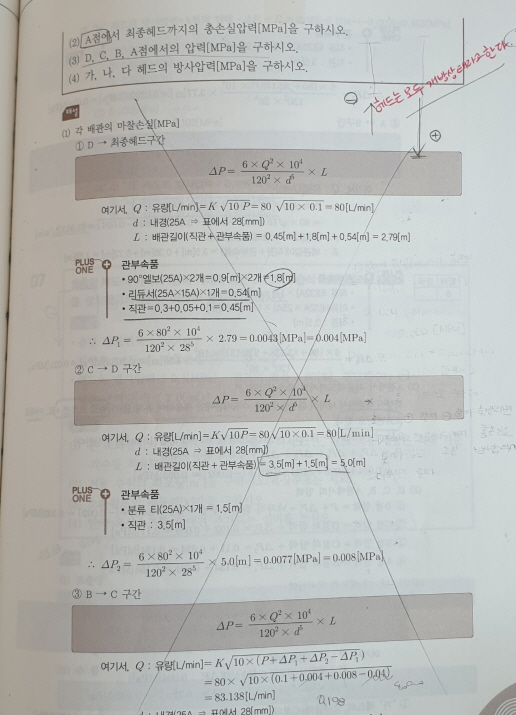 (2) A점에서 최종헤드까지의 총손실압력[MPa]을 구하시오.
(3) D, C, B, A점에서의 압력[MPa]을 구하시오.
(4) 가, 나, 다 헤드의 방사압력[MPa]을 구하시오.
헤드는 모두 개방상태라고 한다
해설
(1) 각 배관의 마찰손실[MPa]
① D → 최종헤드구간
ΔP = 6 × Q² × 10⁴ / 120² × d⁵ × L
여기서, Q : 유량[L/min] = K √10 P = 80 √10 × 0.1 = 80[L/min]
d : 내경(25A ⇒ 표에서 28[mm])
L : 배관길이(직관 + 관부속품) = 0.45[m] + 1.8[m] + 0.54[m] = 2.79[m]
PLUS ONE 관부속품
• 90°엘보(25A)×2개 = 0.9[m]×2개 = 1.8[m]
• 리듀서(25A×15A)×1개 = 0.54[m]
• 직관 = 0.3+0.05+0.1 = 0.45[m]
∴ ΔP₁ = 6 × 80² × 10⁴ / 120² × 28⁵ × 2.79 = 0.0043[MPa] = 0.004[MPa]
② C → D 구간
ΔP = 6 × Q² × 10⁴ / 120² × d⁵ × L
여기서, Q : 유량[L/min] = K √10P = 80 √10 × 0.1 = 80[L/min]
d : 내경(25A ⇒ 표에서 28[mm])
L : 배관길이(직관 + 관부속품) = 3.5[m] + 1.5[m] = 5.0[m]
PLUS ONE 관부속품
• 분류 티(25A)×1개 = 1.5[m]
• 직관 : 3.5[m]
∴ ΔP₂ = 6 × 80² × 10⁴ / 120² × 28⁵ × 5.0[m] = 0.0077[MPa] = 0.008[MPa]
③ B → C 구간
ΔP = 6 × Q² × 10⁴ / 120² × d⁵ × L
여기서, Q : 유량[L/min] = K √10 × (P + ΔP₁ + ΔP₂ − ΔP₁)
= 80 × √10 × (0.1 + 0.004 + 0.008 − 0.04)
= 83.138[L/min]
0.198
d : 내경(25A ⇒ 표에서 28[mm])